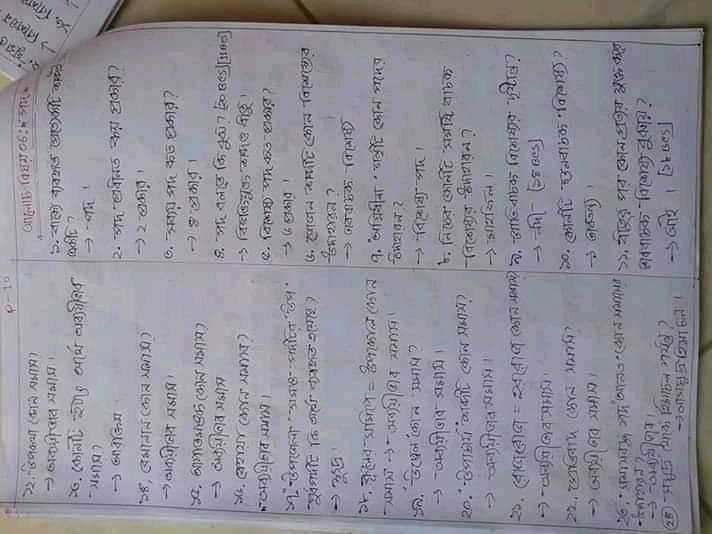 P-10
১২. উপকথা কোন সমাস?
→ অব্যয়ীভাব সমাস।
১৩. কোনটি ঈষৎ অর্থে অব্যয়ীভাব
সমাস?
→ আরক্তিম
১৪. বেমালান কোন সমাস?
→ অব্যয়ীভাব সমাস।
১৫. আপাদমস্তক কোন সমাস?
→ অব্যয়ীভাব সমাস
১৬. বেহায়া কোন সমাস?
অব্যয়ীভাব সমাস।
১৭. "উপজেলা" সমস্ত পদটির "উপ"
পূর্বপদটি কি অর্থে ব্যবহৃত হয়েছে?
→ ক্ষুদ্র।
১৮. কূলের সমিপে = উপকোল কোন
সমাস → অব্যয়ীভাব সমাস।
১৯. উদ্বেল কোন সমাস?
→ অব্যয়ীভাব সমাস।
২০. "উপাচার্য" শব্দটি কোন সমাস?
→ অব্যয়ীভাব সমাস।
২১. রোজরোজ = হররোজ কোন সমাস?
→ অব্যয়ীভাব সমাস।
২২. প্রতিবাদ কোন সমাস?
→ অব্যয়ীভাব সমাস।
২৩. সমাসবদ্ধ পদ "আনত" কোন সমাসের
উদাহরন?
→ অব্যয়ীভাব।
সমুদ্র থেকে হিমাচল পর্যন্ত?
→ আসমুদ্রহিমাচল।
আলোচ্য বিষয় ০৬: "পদ"
১. বাক্যে ব্যবহৃত প্রত্যেকটি শব্দকে
?
→ পদ।
২. পদ প্রধানত কয় প্রকার?
→ ২ প্রকার।
৩. অব্যয় পদ কত প্রকার?
→ ৪ প্রকার।
৪. পদ বলতে কি বুঝ? [২০ BCS]
→ বিভক্তিযুক্ত শব্দও ধাতু।
৫. বিশেষ্য পদ কত প্রকার?
→ ৬ প্রকার।
৬. ভোজন শব্দটি কোন বিশেষ্যের
উদাহারন?
→ ভাববাচক বিশেষ্য
৭. "অগ্নিবীনা" শব্দটি কোন পদের
উদাহারন?
→ বিশেষ্য পদ।
৮. নিচের কোনটি সমষ্টি বাচক
বিশেষ্যের উদাহারন?
→ মাহফিল।
৯. জাতিবাচক বিশেষ্যের দৃষ্টান্ত?
→ নদী [১৪ BCS]
১০. কোনটি গুনবাচক বিশেষ্য?
→ তারুন্য।
১১. ধাতুর পর কোন প্রত্যয় যুক্ত করে
ভাববাচক বিশেষ্য বুঝায়?
→ আই। [১৮ BCS]